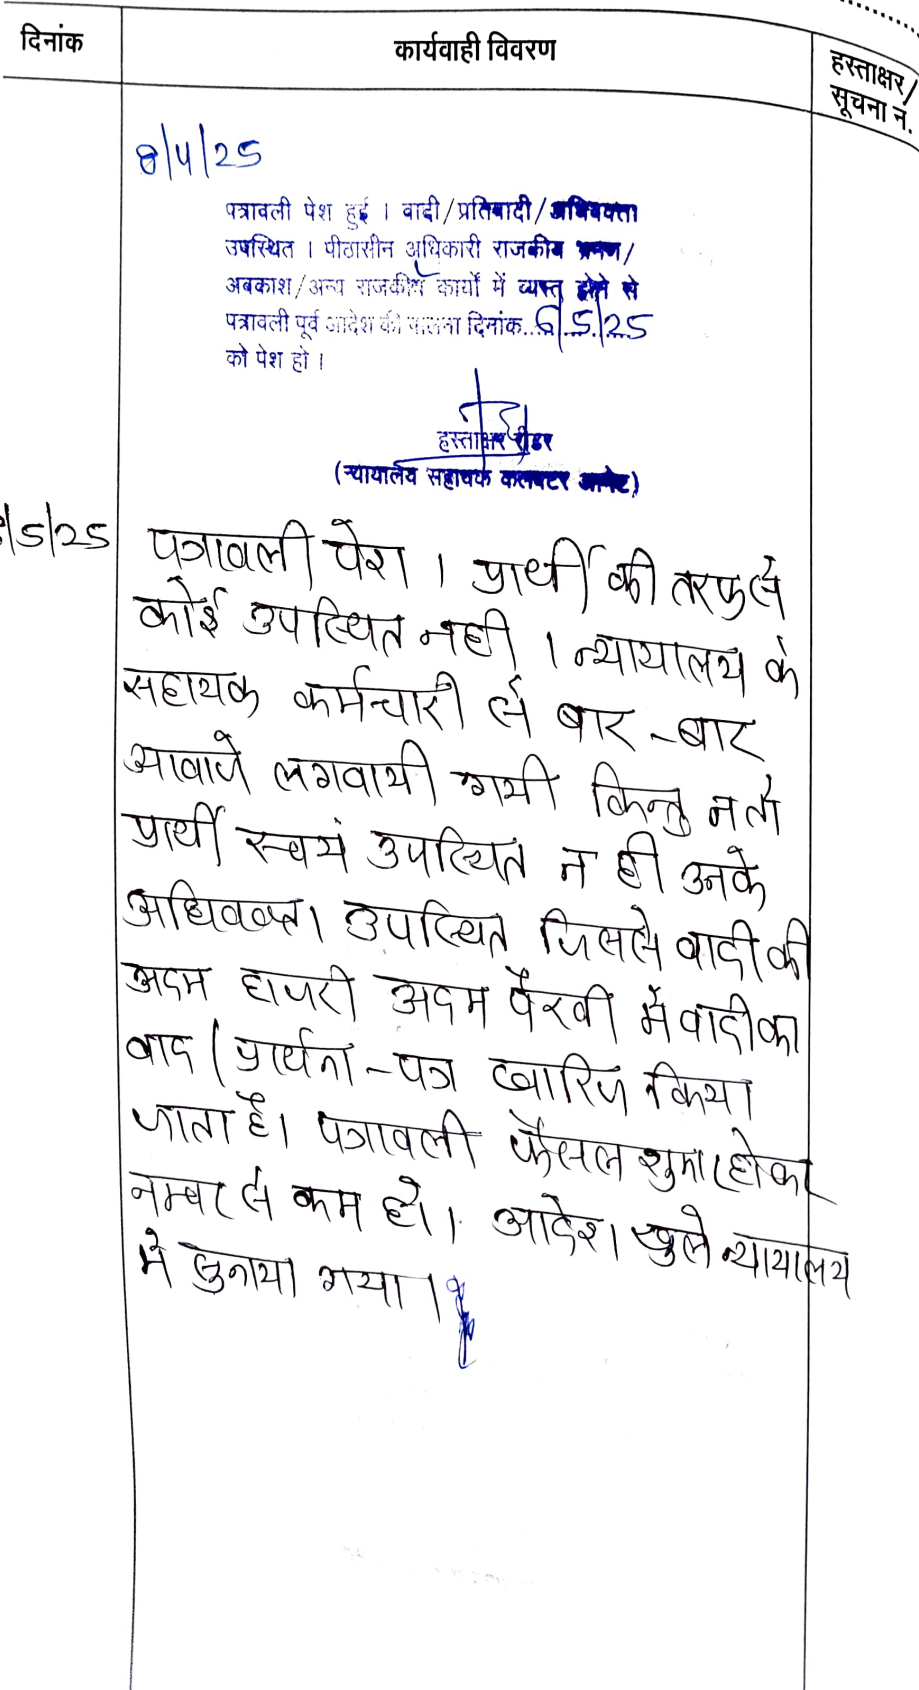 दिनांक
कार्यवाही विवरण
हस्ताक्षर/
सूचना न.
8/4/25
पत्रावली पेश हुई । वादी/प्रतिवादी/अधिवक्ता
उपस्थित । पीठासीन अधिकारी राजकीय भ्रमण/
अवकाश/अन्य राजकीय कार्यो में व्यस्त होने से
पत्रावली पूर्व आदेश की पालना दिनांक..6/5/25
को पेश हो ।
हस्ताक्षर रीडर
(न्यायालय सहायक कलक्टर आमेट)
/5/25 पत्रावली पेश । प्रार्थी की तरफ से
कोई उपस्थित नही । न्यायालय के
सहायक कर्मचारी से बार-बार
आवाजे लगवायी गयी किन्तु न तो
प्रार्थी स्वयं उपस्थित न ही उनके
अधिवक्ता उपस्थित जिससे वादी की
अदम हाजरी अदम पैरवी में वादी का
वाद/प्रार्थना-पत्र खारिज किया
जाता है। पत्रावली फैसल शुमार होकर
नम्बर से कम हो। आदेश खुले न्यायालय
मे सुनाया गया ।